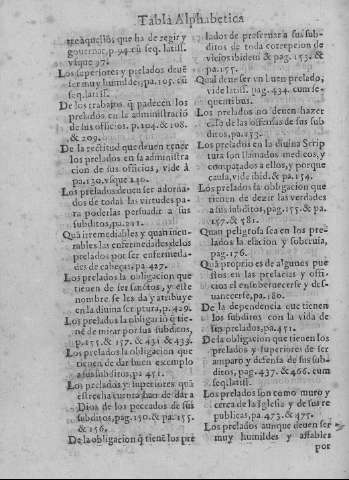 Tabla Alphabetica
tre aquello, que ha de regir y
gouernar, p.94. cũ seq. latiss.
vsque 97.
Los superiores y prelados deuẽ
ser muy humildes, pa.105. cũ
seq. latiss.
De los trabajos q̃ padecen los
prelados en la administraciõ
de sus oficios. p.104. & 108.
& 209.
De la rectitud que deuen tener
los prelados en la administra
cion de sus oficios, vide à
pa.130. vsque 136.
Los prelados deuen ser adorna-
dos de todas las virtudes pa-
ra poderlas persuadir a sus
subditos, pa.211.
Quã irremediables y quan incu-
rables las enfermedades de los
prelados por ser enfermeda-
des de cabeças, pa.427.
Los prelados la obligacion que
tienen de ser santos, y este
nombre se les da y atribuye
en la diuina scriptura, p.429.
Los prelados la obligaciõ q̃ tie-
nẽ de mirar por sus subditos,
p.155. & 157. & 431 & 439.
Los prelados la obligacion que
tienen de dar buen exemplo
a sus subditos, pa 451.
Los prelados y superiores quã
estrecha cuenta han de dar a
Dios de los peccados de sus
subditos, pag.150. & pa. 155.
& 156.
De la obligacion q̃ tienẽ los pre
lados de preseruar a sus sub-
ditos de toda corrupcion de
vicios ibidem & pag. 153. &
pa.155.
Qual deue ser vn buen prelado,
vide latiss. pag. 434. cum se-
quentibus.
Los prelados no deuen hazer
caso de las ofensas de sus sub
ditos, pa.153.
Los prelados en la diuina Scrip
tura son llamados medicos, y
comparados a ellos, y porque
causa, vide ibid. & pa.154.
Los prelados la obligacion que
tienen de dezir las verdades
a sus subditos, pag.155. & pa.
157. & 581.
Quan peligrosa sea en los pre-
lados la elacion y soberuia,
pag.176.
Quã proprio es de algunos pue
stos en las prelacias y offi-
cios el ensoberuecerse y des-
uanecerse, pa.180.
De la dependencia que tienen
los subditos con la vida de
sus prelados, pa.451.
De la obligacion que tienen los
prelados y superiores de ser
amparo y defensa de sus sub-
ditos, pag.437. & 466. cum
seq. latiss.
Los prelados son como muro y
cerca de la Iglesia y de sus re
publicas, pa.473. & 475.
Los prelados aunque deuen ser
muy humildes y affables
por